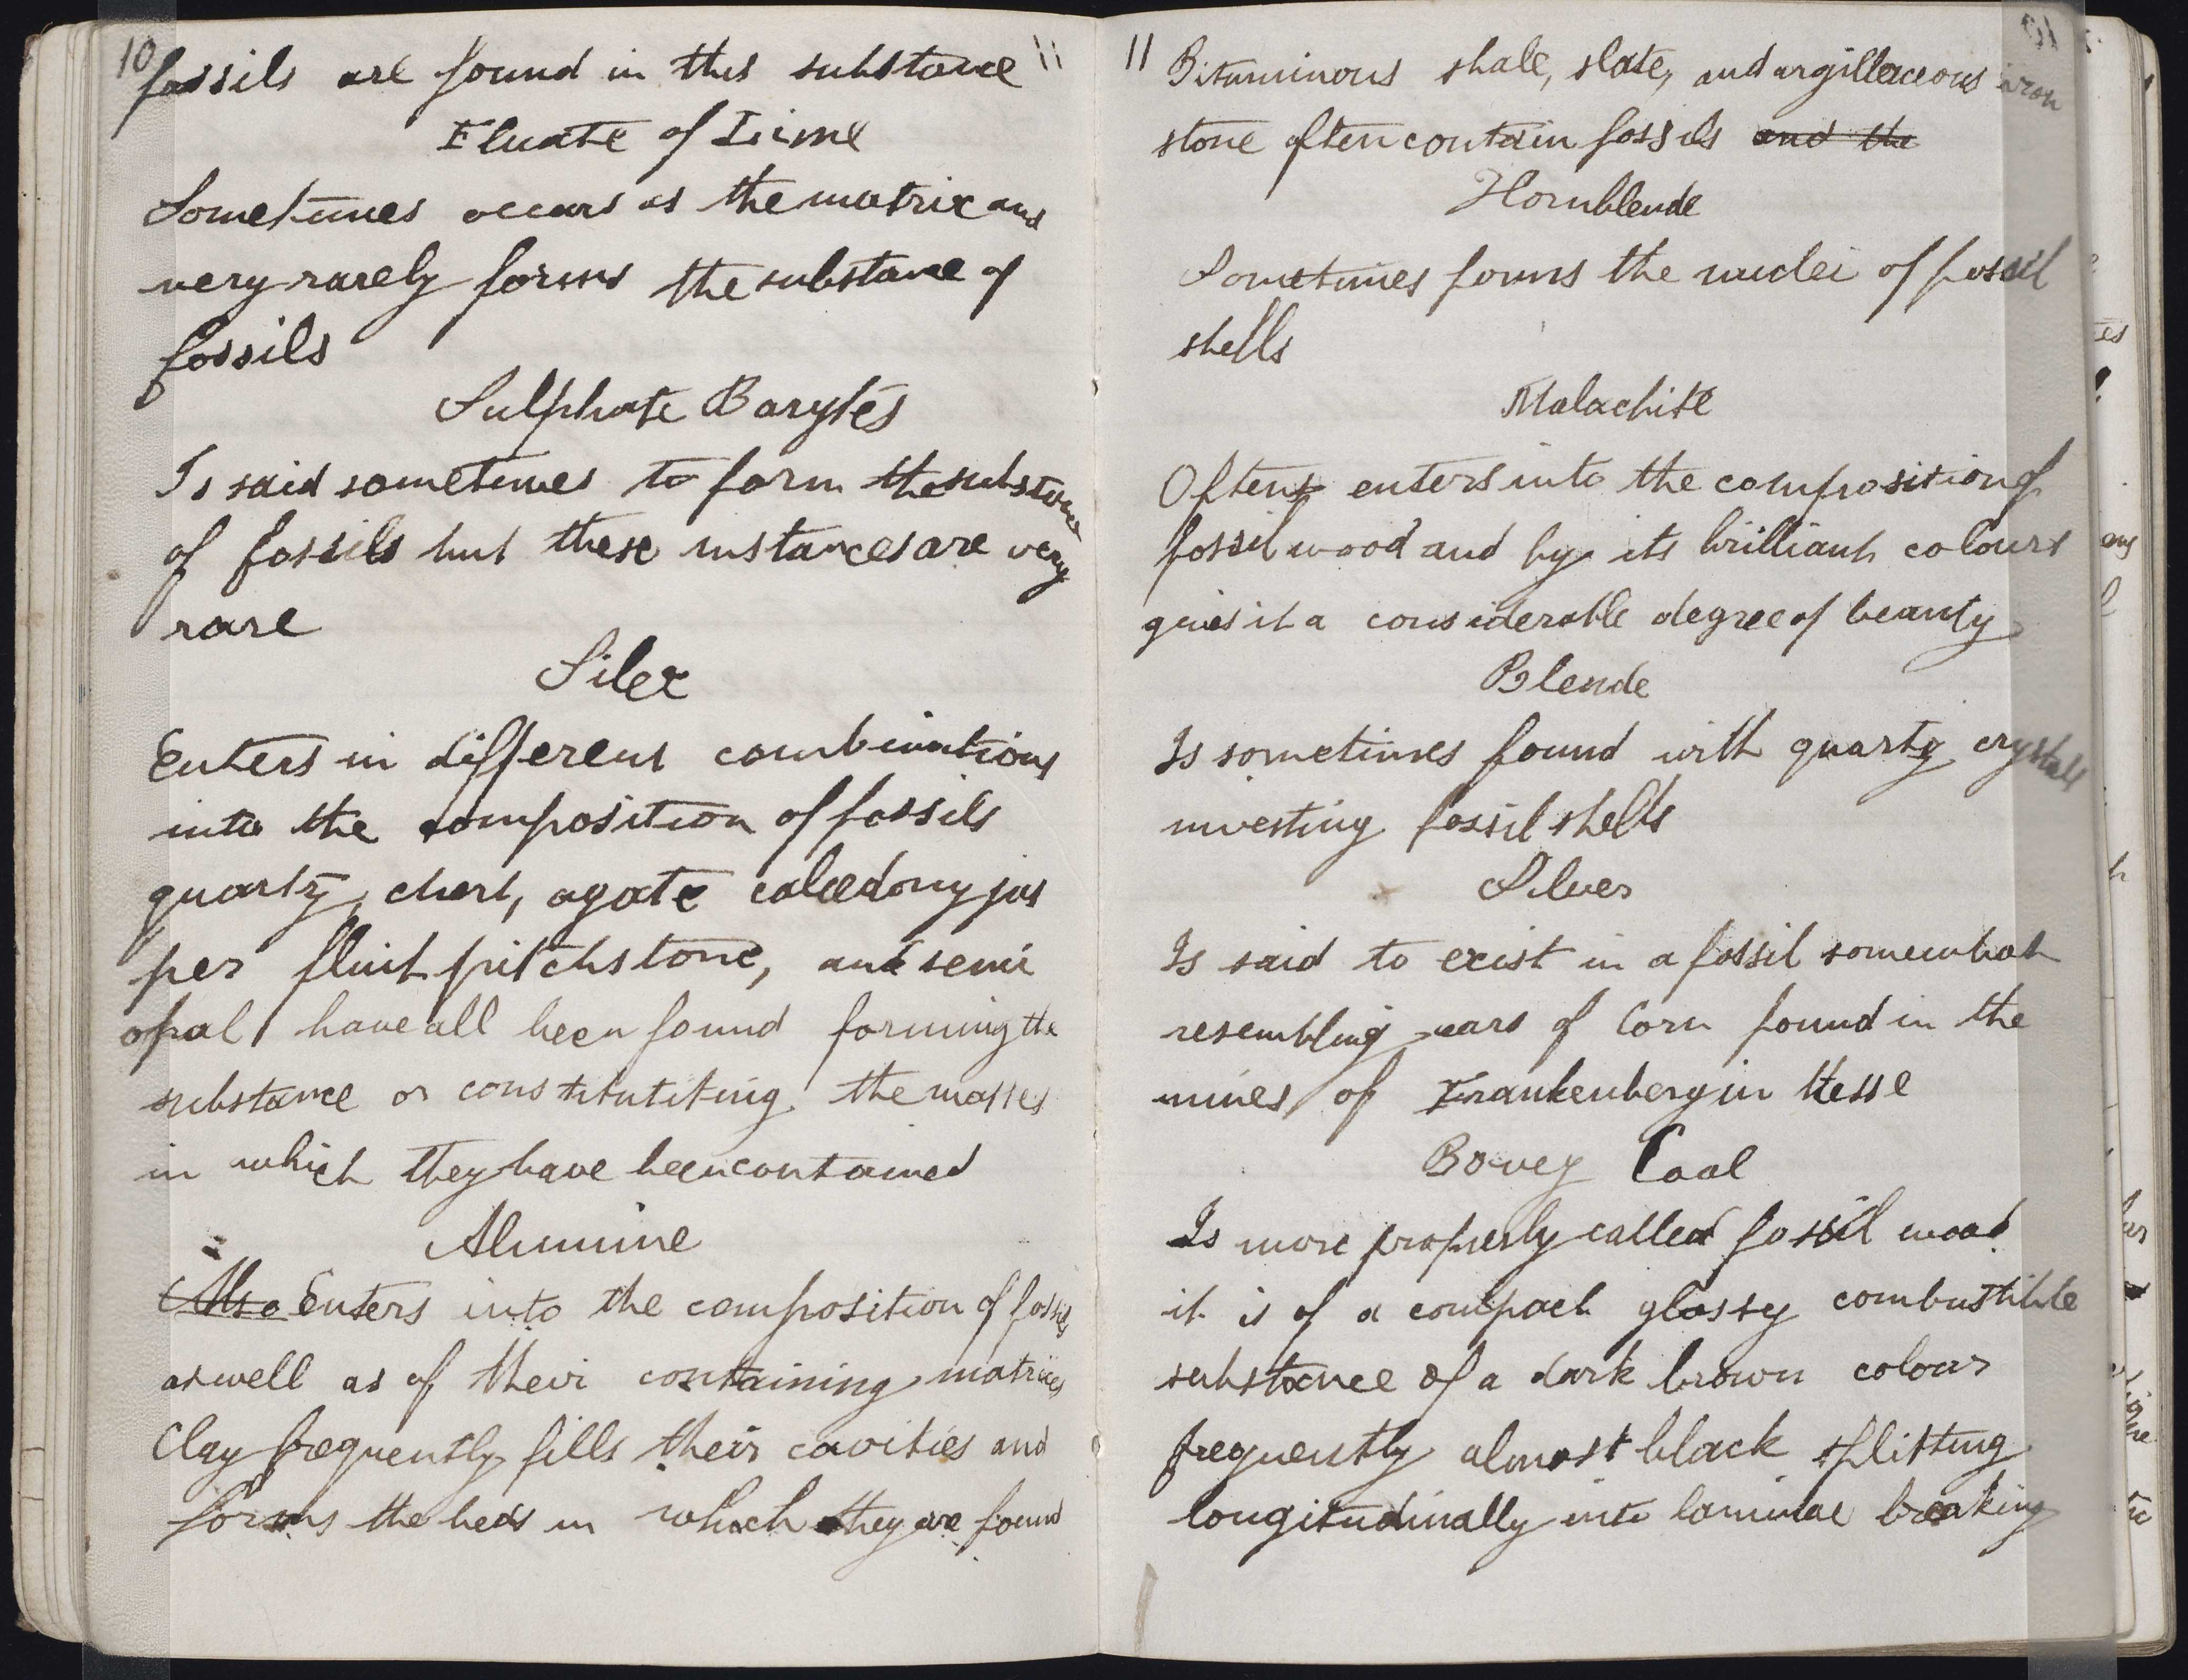 10
fossils are found in this substance
Fluate of Lime
Sometimes occurs as the matrix and
very rarely forms the substance of
fossils
Sulphate Barytes
Is said sometimes to form the substance
of fossils but these instances are very
rare
Silex
Enters in different combinations
into the composition of fossils
quartz, chert, agate calcedony jas
per flint pitchstone, and semi
opal have all been found forming the
substance or constitutiting the masses
in which they have been contained
Alumine
Also Enters into the composition of fossils
as well as of their containing matrices
Clay frequently fills their cavities and
forms the beds in which they are found
11
11
Bituminous shale, slate, and argillaceous iron
stone often contain fossils and the
Hornblende
Sometimes forms the nuclei of fossil
shells
Malachite
Often enters into the composition of
fossil wood and by its brilliant colours
gives it a considerable degree of beauty
Blende
Is sometimes found with quartz crystals
investing fossil shells
Silver
Is said to exist in a fossil somewhat
resembling ears of Corn found in the
mines of Frankenberg in Hesse
Bovey Coal
Is more properly called fossil wood
it is of a compact glossy combustible
substance of a dark brown colour
frequently almost black splitting
longitudinally into laminae breaking